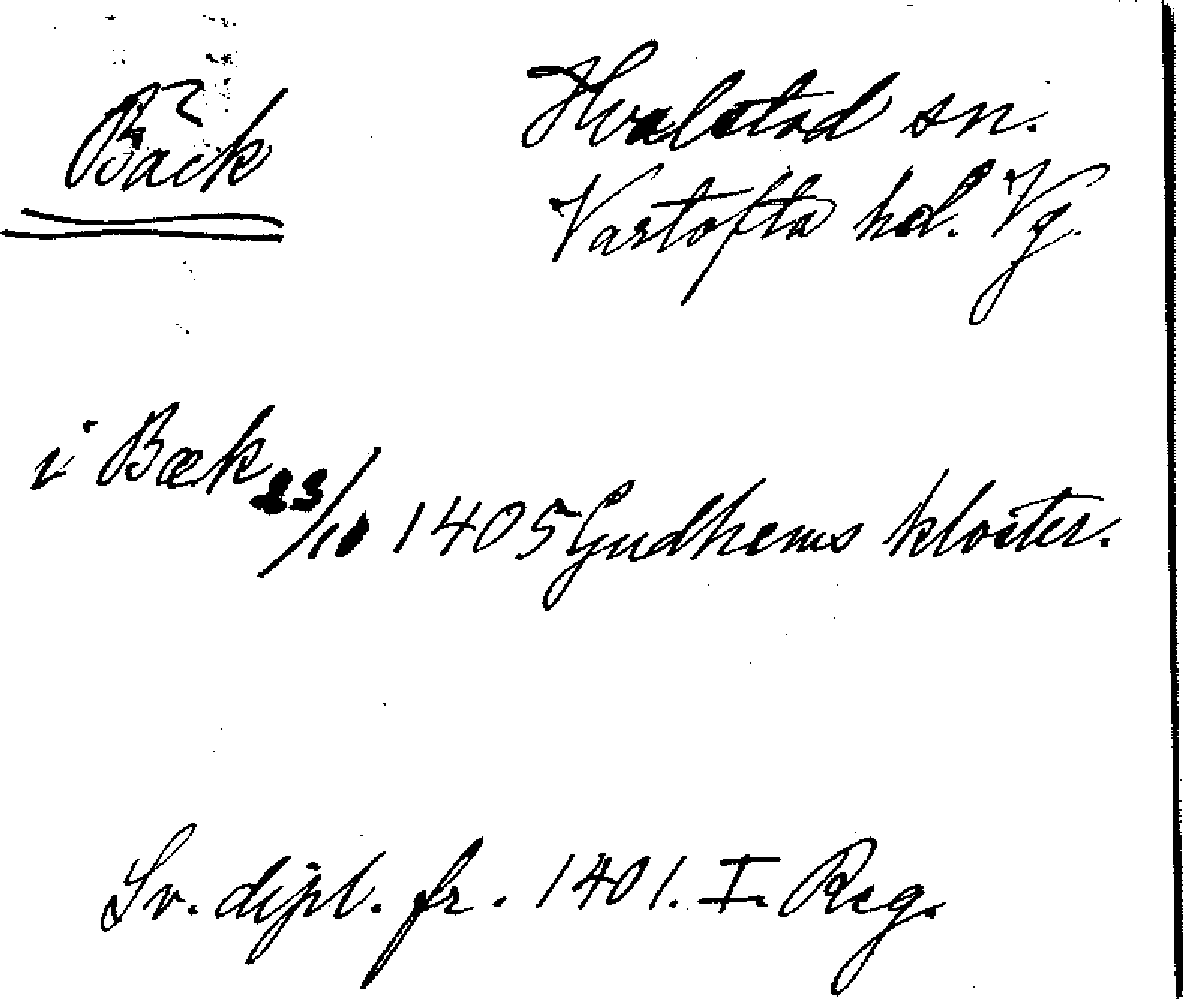 Bäck
Hvalstad sn.
Vartofta hd. Vg.
i Bæk 23/10 1405 Gudhems kloster.
Sv. dipl. fr. 1401. I. Reg.